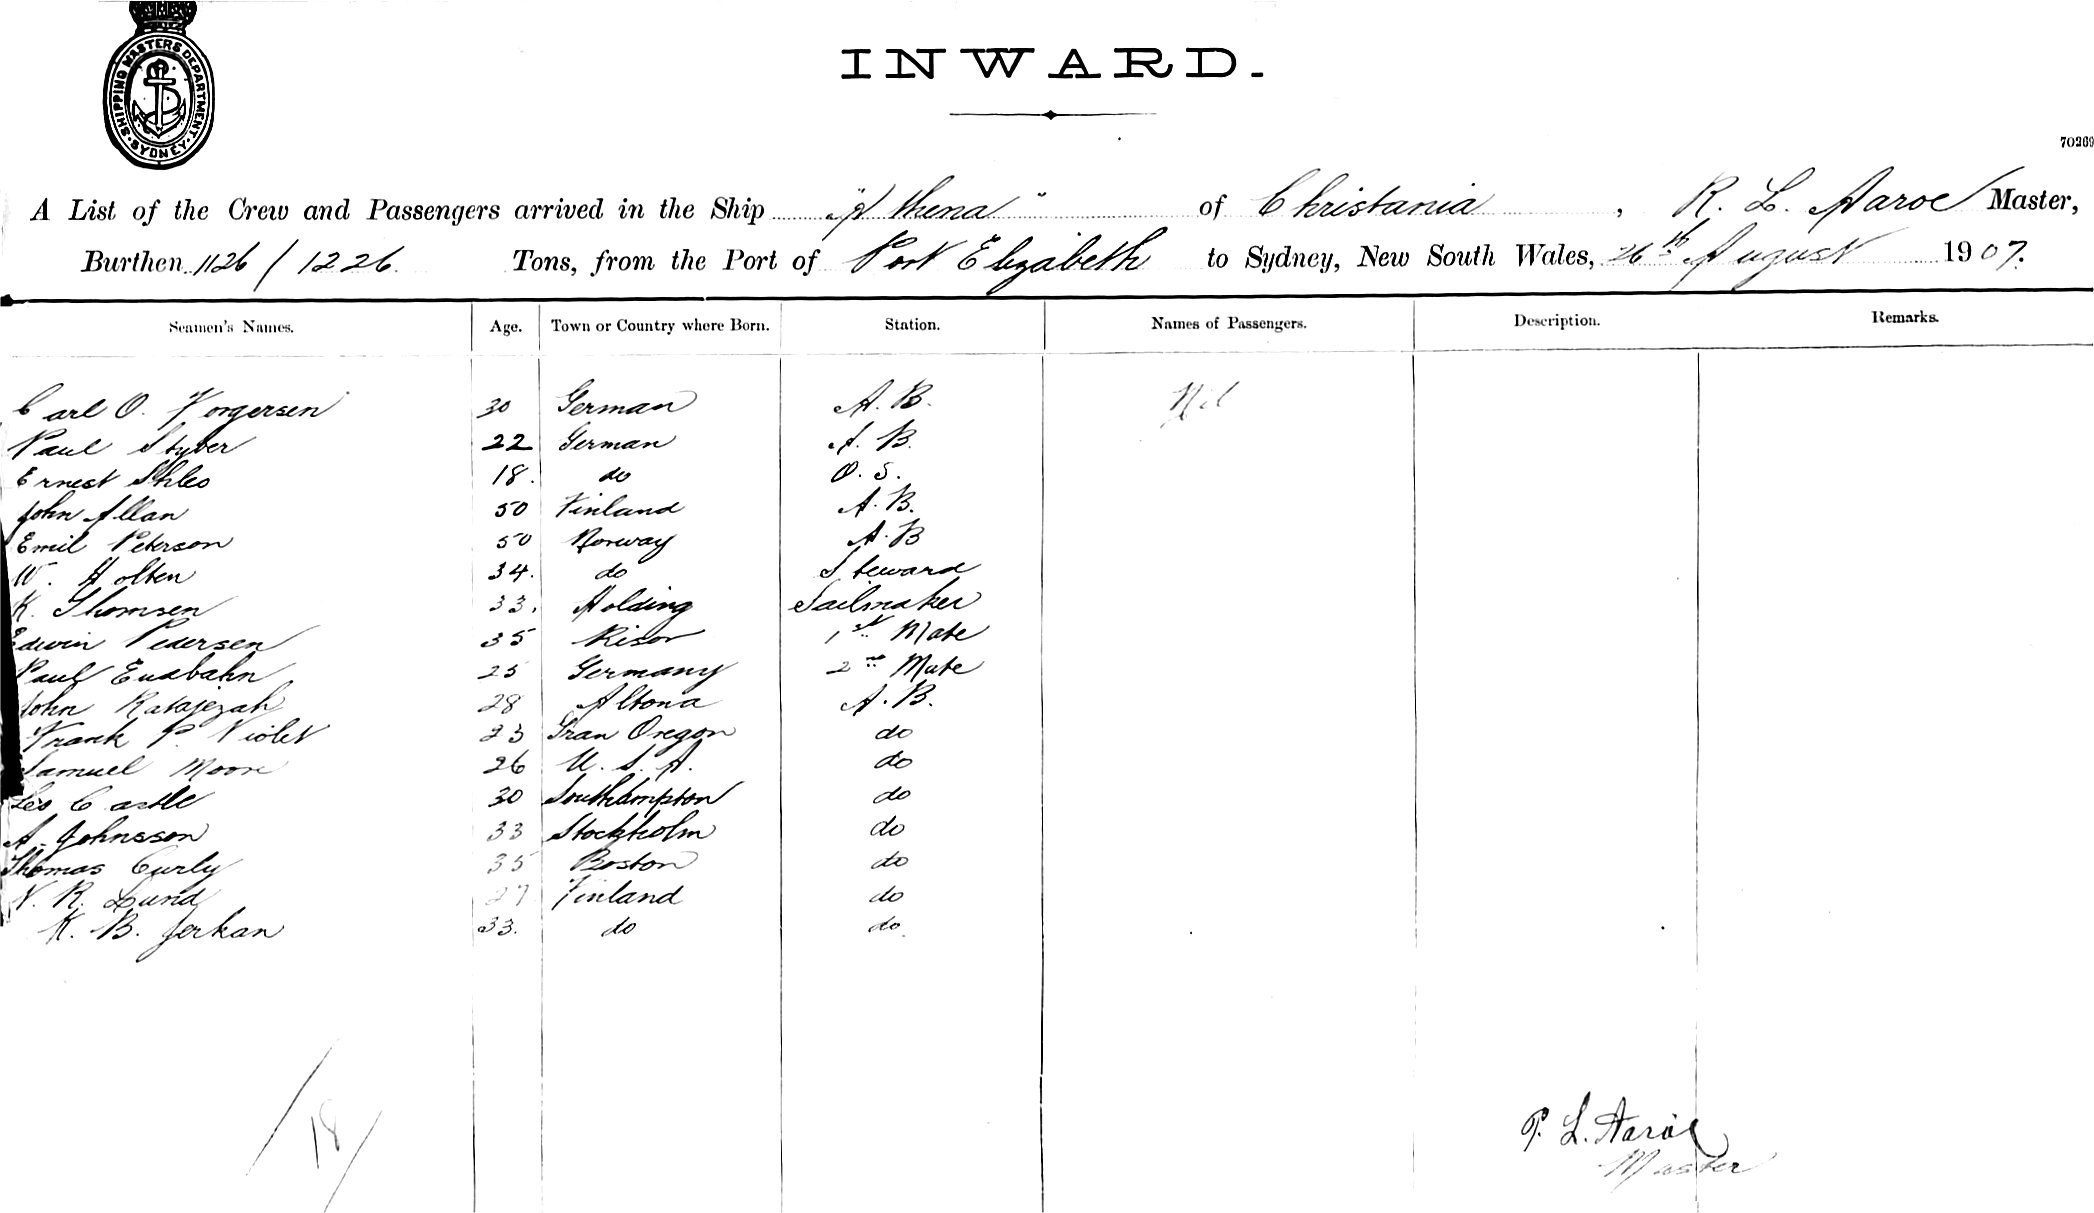 SHIPPING MASTERS DEPARTMENT · SYDNEY ·
INWARD.
70269
A List of the Crew and Passengers arrived in the Ship "Athena" of Christania, R. L. Aaroe Master,
Burthen 1126 / 1226 Tons, from the Port of Port Elizabeth to Sydney, New South Wales, 26th August 1907.
Seamen's Names. Age. Town or Country where Born. Station. Names of Passengers. Description. Remarks.
Carl O. Torgersen 30 German A. B. Nil
Paul Styber 22 German A. B.
Ernest 18. do O. S.
John Allan 50 Finland A. B.
Emil Peterson 50 Norway A. B
W. Holten 34. do Steward
K. Thomsen 33. Holding Sailmaker
Edwin Pedersen 35 Risor 1st Mate
Paul 25 Germany 2nd Mate
John 28 Altona A. B.
Frank P. Violet 23 Gran Oregon do
Samuel Moore 26 U. S. A. do
Leo Castle 30 Southampton do
A. Johnsson 33 Stockholm do
Thomas Curly 35 Boston do
N. R. Lund 27 Finland do
K. B. Jerkan 33. do do.
/ 18 /
P. L. Aaroe
Master